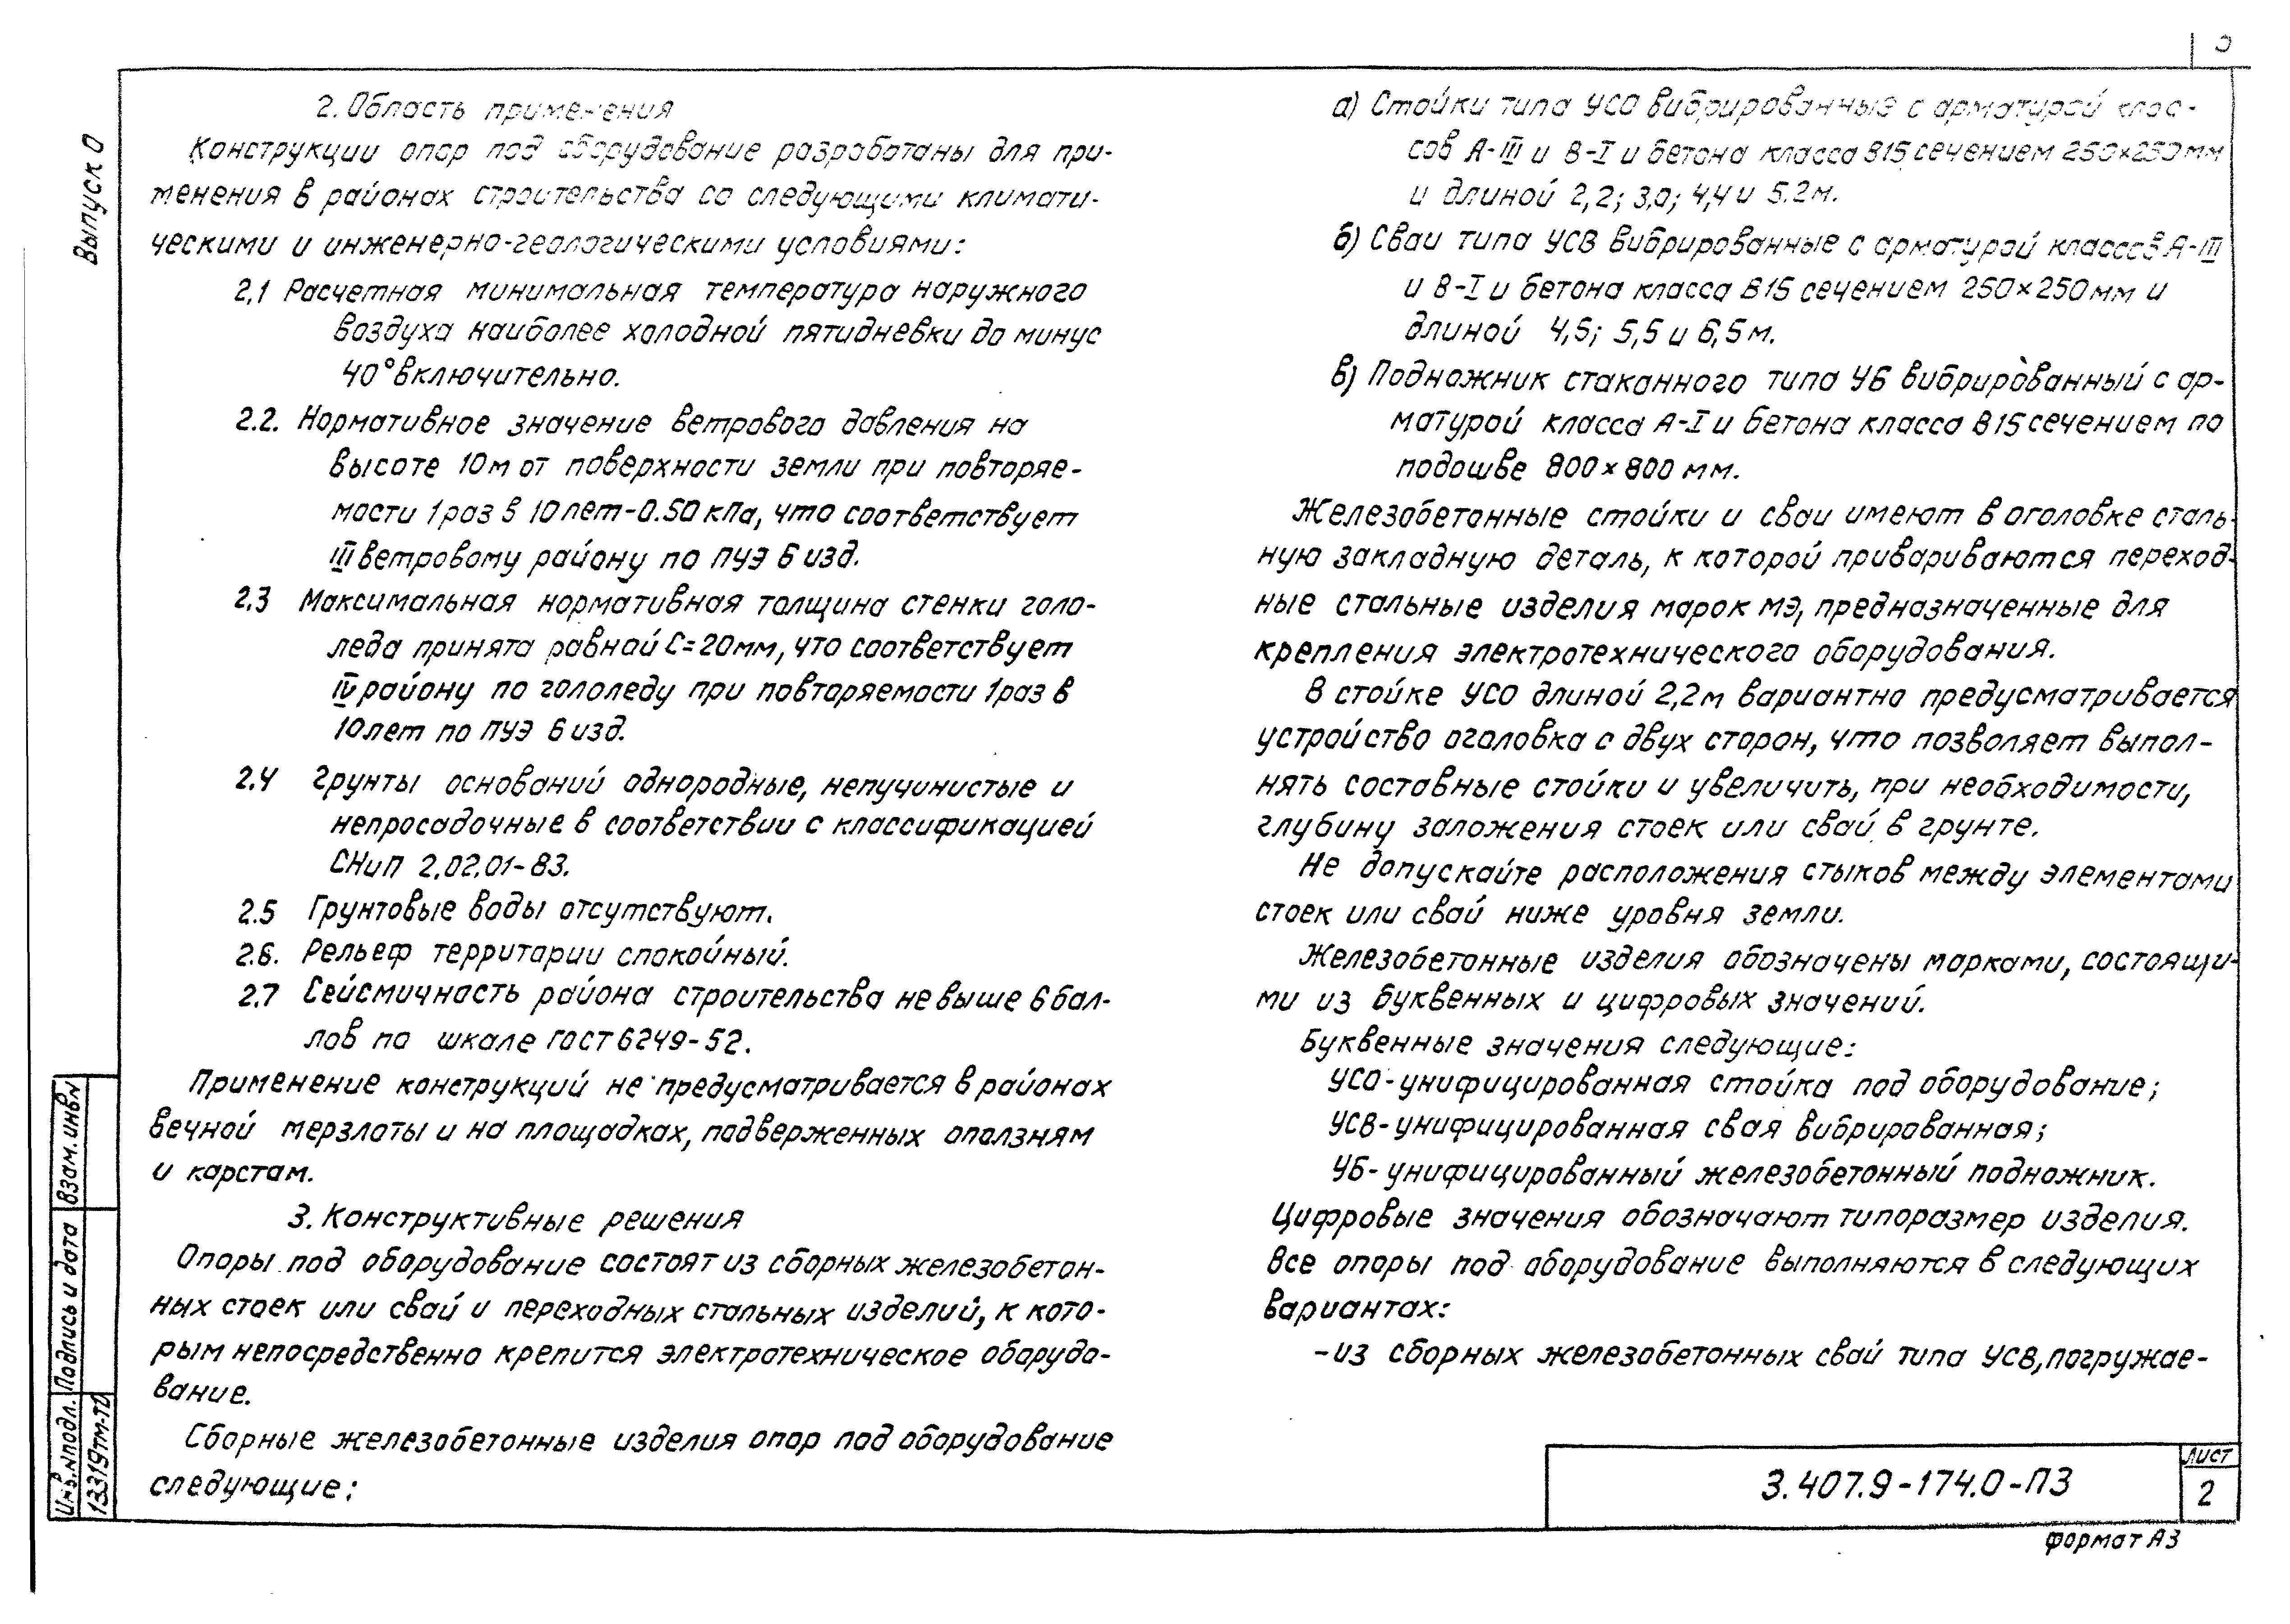 Выпуск 0
2. Область применения
Конструкции опор под оборудование разработаны для при-
менения в районах строительства со следующими климати-
ческими и инженерно-геологическими условиями:
2,1 Расчетная минимальная температура наружного
воздуха наиболее холодной пятидневки до минус
40° включительно.
2.2. Нормативное значение ветрового давления на
высоте 10м от поверхности земли при повторяе-
мости 1 раз в 10 лет-0.50 кПа, что соответствует
III ветровому району по ПУЭ 6 изд.
2.3 Максимальная нормативная толщина стенки голо-
леда принята равной С=20мм, что соответствует
IV району по гололеду при повторяемости 1 раз в
10 лет по ПУЭ 6 изд.
2.4 Грунты оснований однородные, непучинистые и
непросадочные в соответствии с классификацией
СНиП 2.02.01-83.
2.5 Грунтовые воды отсутствуют.
2.6. Рельеф территории спокойный.
2.7 Сейсмичность района строительства не выше 6 бал-
лов по шкале ГОСТ 6249-52.
Применение конструкций не предусматривается в районах
вечной мерзлоты и на площадках, подверженных оползням
и карстам.
3. Конструктивные решения
Опоры под оборудование состоят из сборных железобетон-
ных стоек или свай и переходных стальных изделий, к кото-
рым непосредственно крепится электротехническое оборудо-
вание.
Сборные железобетонные изделия опор под оборудование
следующие:
а) Стойки типа УСО вибрированные с арматурой клас-
сов А-III и В-I и бетона класса В15 сечением 250×250мм
и длиной 2,2; 3,0; 4,4 и 5.2м.
б) Сваи типа УСВ вибрированные с арматурой классов А-III
и В-I и бетона класса В15 сечением 250×250мм и
длиной 4,5; 5,5 и 6,5м.
в) Подножник стаканного типа УБ вибрированный с ар-
матурой класса А-I и бетона класса В15 сечением по
подошве 800×800 мм.
Железобетонные стойки и сваи имеют в оголовке сталь-
ную закладную деталь, к которой привариваются переход-
ные стальные изделия марок МЭ, предназначенные для
крепления электротехнического оборудования.
В стойке УСО длиной 2,2м вариантно предусматривается
устройство оголовка с двух сторон, что позволяет выпол-
нять составные стойки и увеличить, при необходимости,
глубину заложения стоек или свай в грунте.
Не допускайте расположения стыков между элементами
стоек или свай ниже уровня земли.
Железобетонные изделия обозначены марками, состоящи-
ми из буквенных и цифровых значений.
Буквенные значения следующие:
УСО-унифицированная стойка под оборудование;
УСВ-унифицированная свая вибрированная;
УБ-унифицированный железобетонный подножник.
Цифровые значения обозначают типоразмер изделия.
Все опоры под оборудование выполняются в следующих
вариантах:
-из сборных железобетонных свай типа УСВ, погружае-
Взам. инв.N
Подпись и дата
Инв.Nподл.
13319тм-т2
3.407.9-174.0-ПЗ
Лист
2
Формат А3